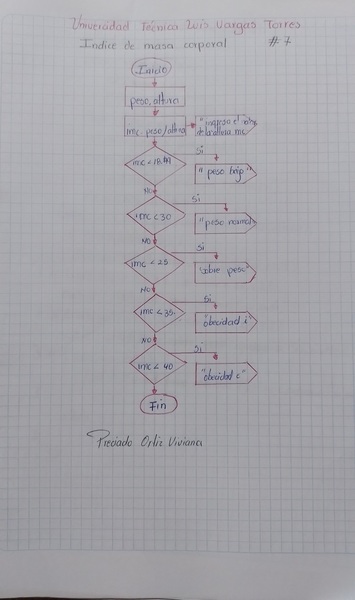 Universidad Técnica Luis Vargas Torres
Indice de masa corporal #7
Inicio
peso, altura
imc = peso/altura
"ingrese el
de la altura imc
imc < 18.49
Si
"peso bajo"
NO
imc < 30
Si
"peso normal"
NO
imc < 25
Si
"sobre peso"
NO
imc < 35
Si
"obecidad.i"
NO
imc < 40
Si
"obecidad c"
Fin
Preciado Ortiz Viviana